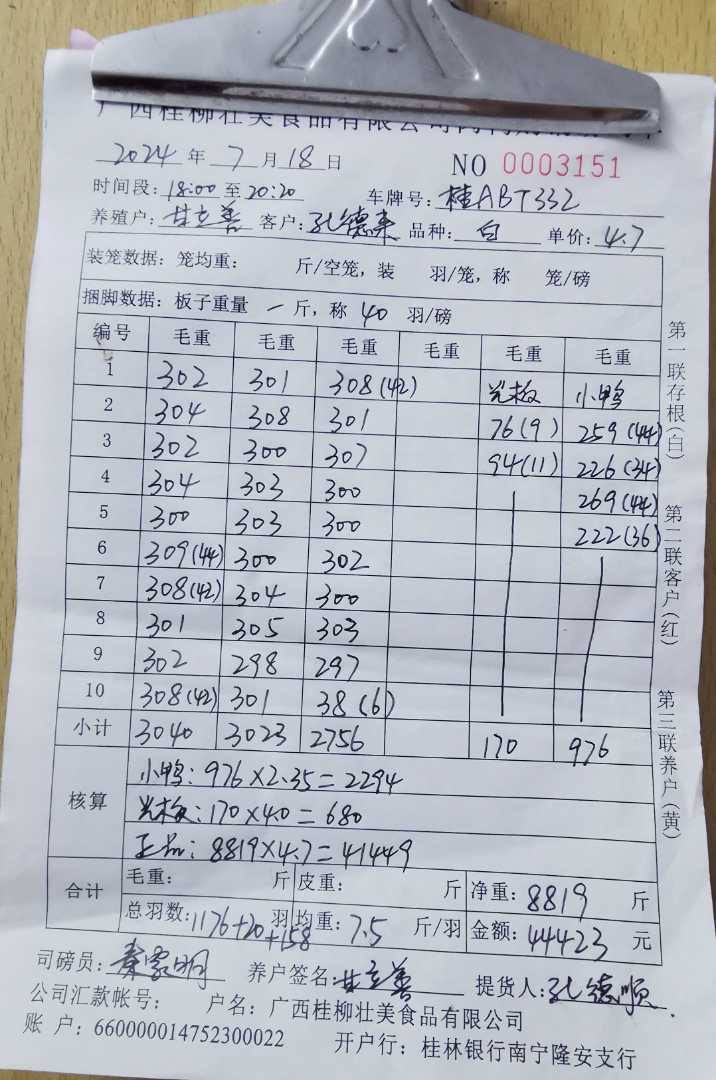 广西桂柳壮美食品有限公司
2024 年 7 月 18 日 NO 0003151
时间段: 18:00 至 20:20 车牌号: 桂ABT332
养殖户: 甘立善 客户: 孔德来 品种: 白 单价: 4.7
装笼数据: 笼均重: 斤/空笼, 装 羽/笼, 称 笼/磅
捆脚数据: 板子重量 一 斤, 称 40 羽/磅
编号 毛重 毛重 毛重 毛重 毛重 毛重
1 302 301 308(42) 光板 小鸭
2 304 308 301 76(9) 259(44)
3 302 300 307 94(11) 226(34)
4 304 303 300 269(44)
5 300 303 300 222(36)
6 309(44) 300 302
7 308(42) 304 300
8 301 305 303
9 302 298 297
10 308(42) 301 38(6)
小计 3040 3023 2756 170 976
核算
小鸭: 976×2.35=2294
光板: 170×4.0=680
正品: 8819×4.7=41449
合计
毛重: 斤 皮重: 斤 净重: 8819 斤
总羽数: 1176+20+158 羽 均重: 7.5 斤/羽 金额: 44423 元
司磅员: 秦家明 养户签名: 甘立善 提货人: 孔德顺
公司汇款帐号: 户名: 广西桂柳壮美食品有限公司
账 户: 660000014752300022 开户行: 桂林银行南宁隆安支行
第一联存根(白) 第二联客户(红) 第三联养户(黄)